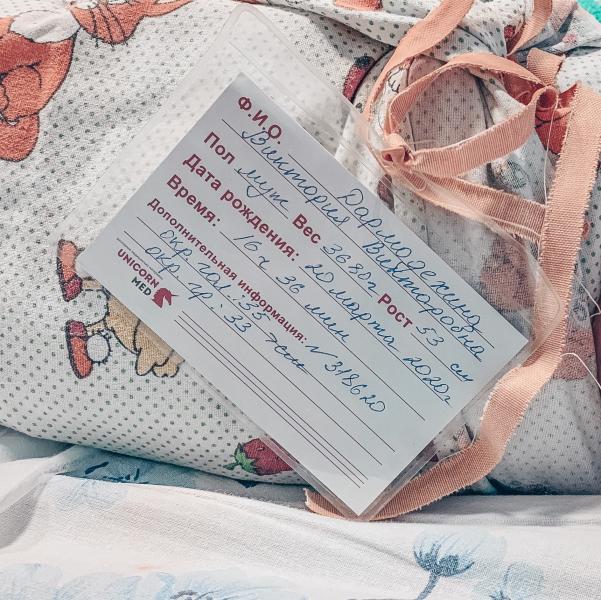 Ф.И.О. Дармоделина
Виктория Викторовна
Пол муж Вес 3680г Рост 53 см
Дата рождения: 20 марта 2020г
Время: 16 ч 36 мин
Дополнительная информация: N 318620
окр. гол.: 35
окр. гр.: 33
UNICORN
MED